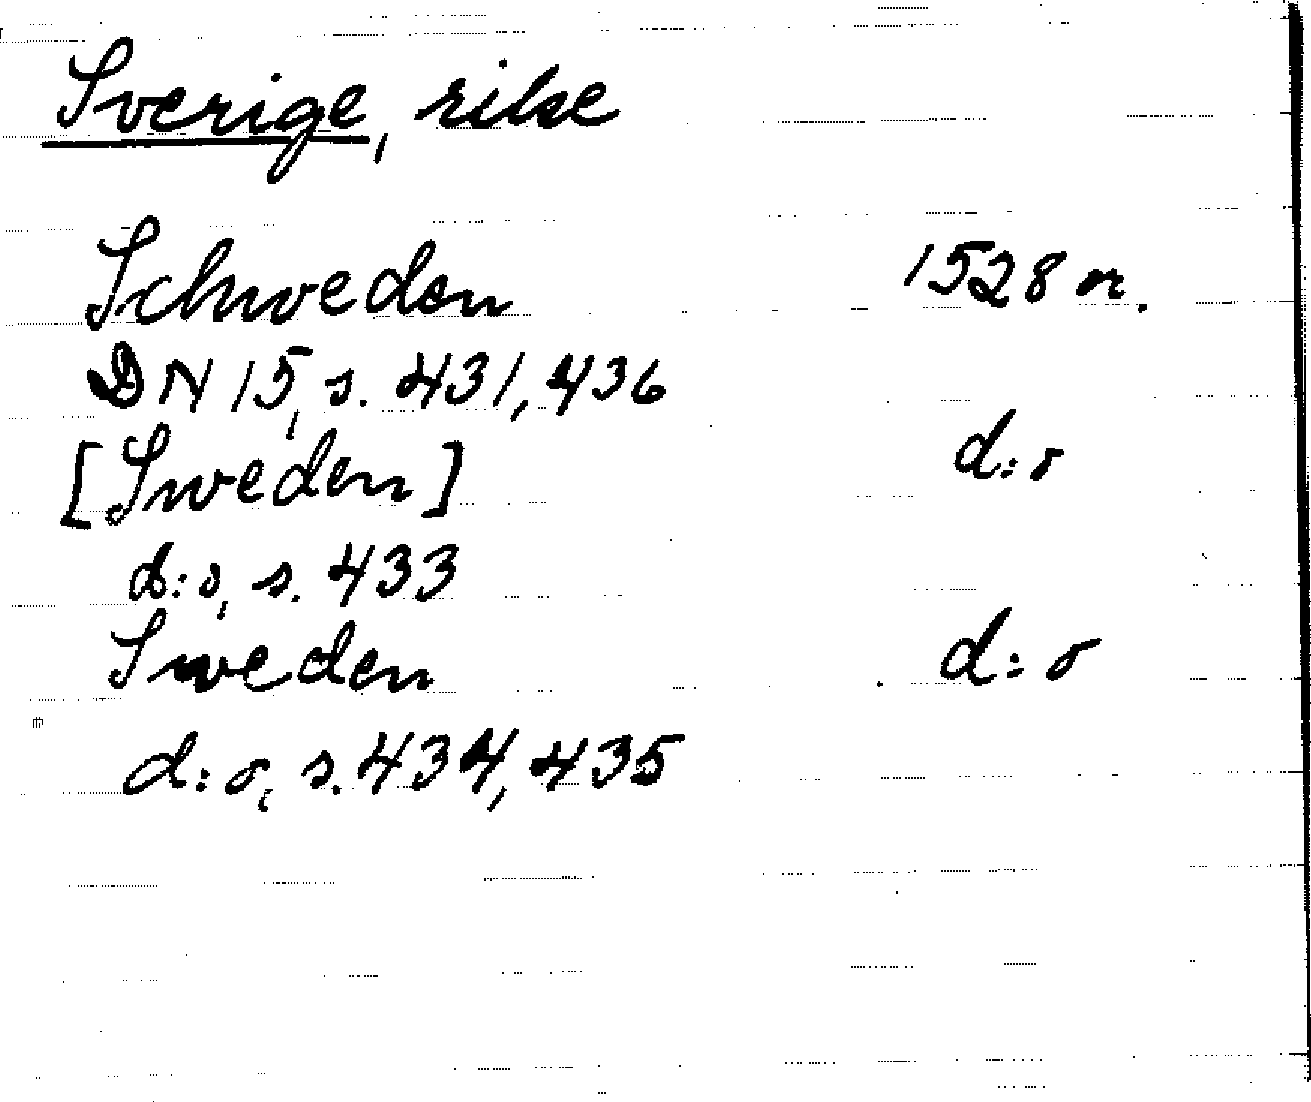 Sverige, rike
Schweden 1528 or.
DN 15, s. 431, 436
[Sweden] d:o
d:o, s. 433
Sweden d:o
d:o, s. 434, 435